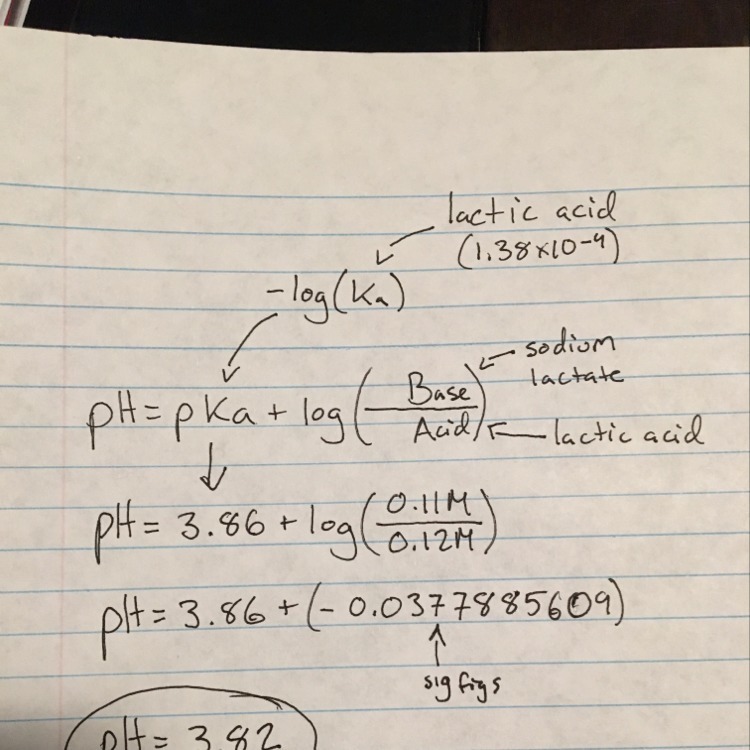 lactic acid
(1.38×10⁻⁴)
-log(Ka)
sodium
lactate
pH = pKa + log(Base/Acid)
lactic acid
pH = 3.86 + log(0.11M/0.12M)
pH = 3.86 + (-0.0377885609)
sig figs
pH = 3.82